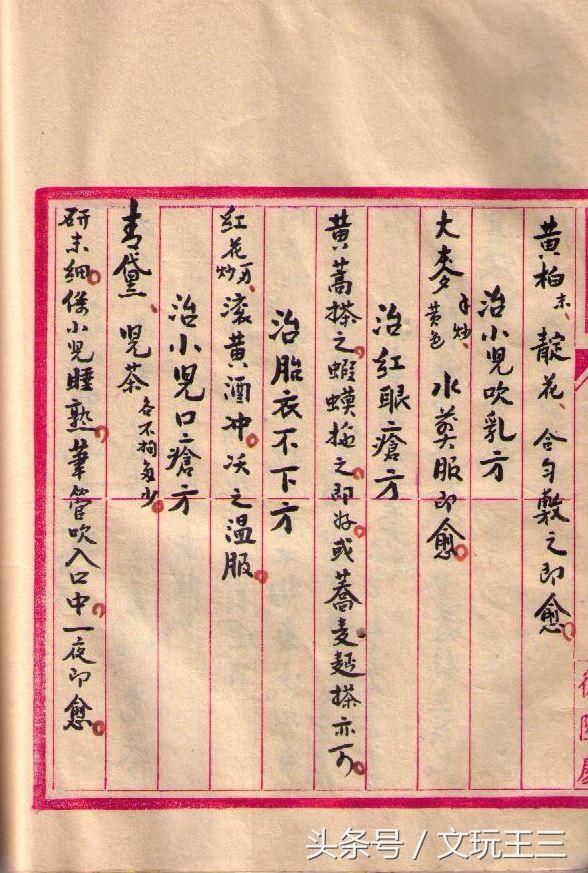 黄柏末、靛花、合匀敷之即愈
治小兒吹乳方
大麥手炒黄色、水煎服即愈
治红眼瘡方
黄蒿搽之蝦蟆拖之即好或蕎麦麺搽亦可
治胎衣不下方
红花炒一两、滚黄酒冲沃之温服
治小兒口瘡方
青黛、兒茶各不拘多少
研末細倏小兒睡熟筆管吹入口中一夜即愈
头条号 / 文玩王三